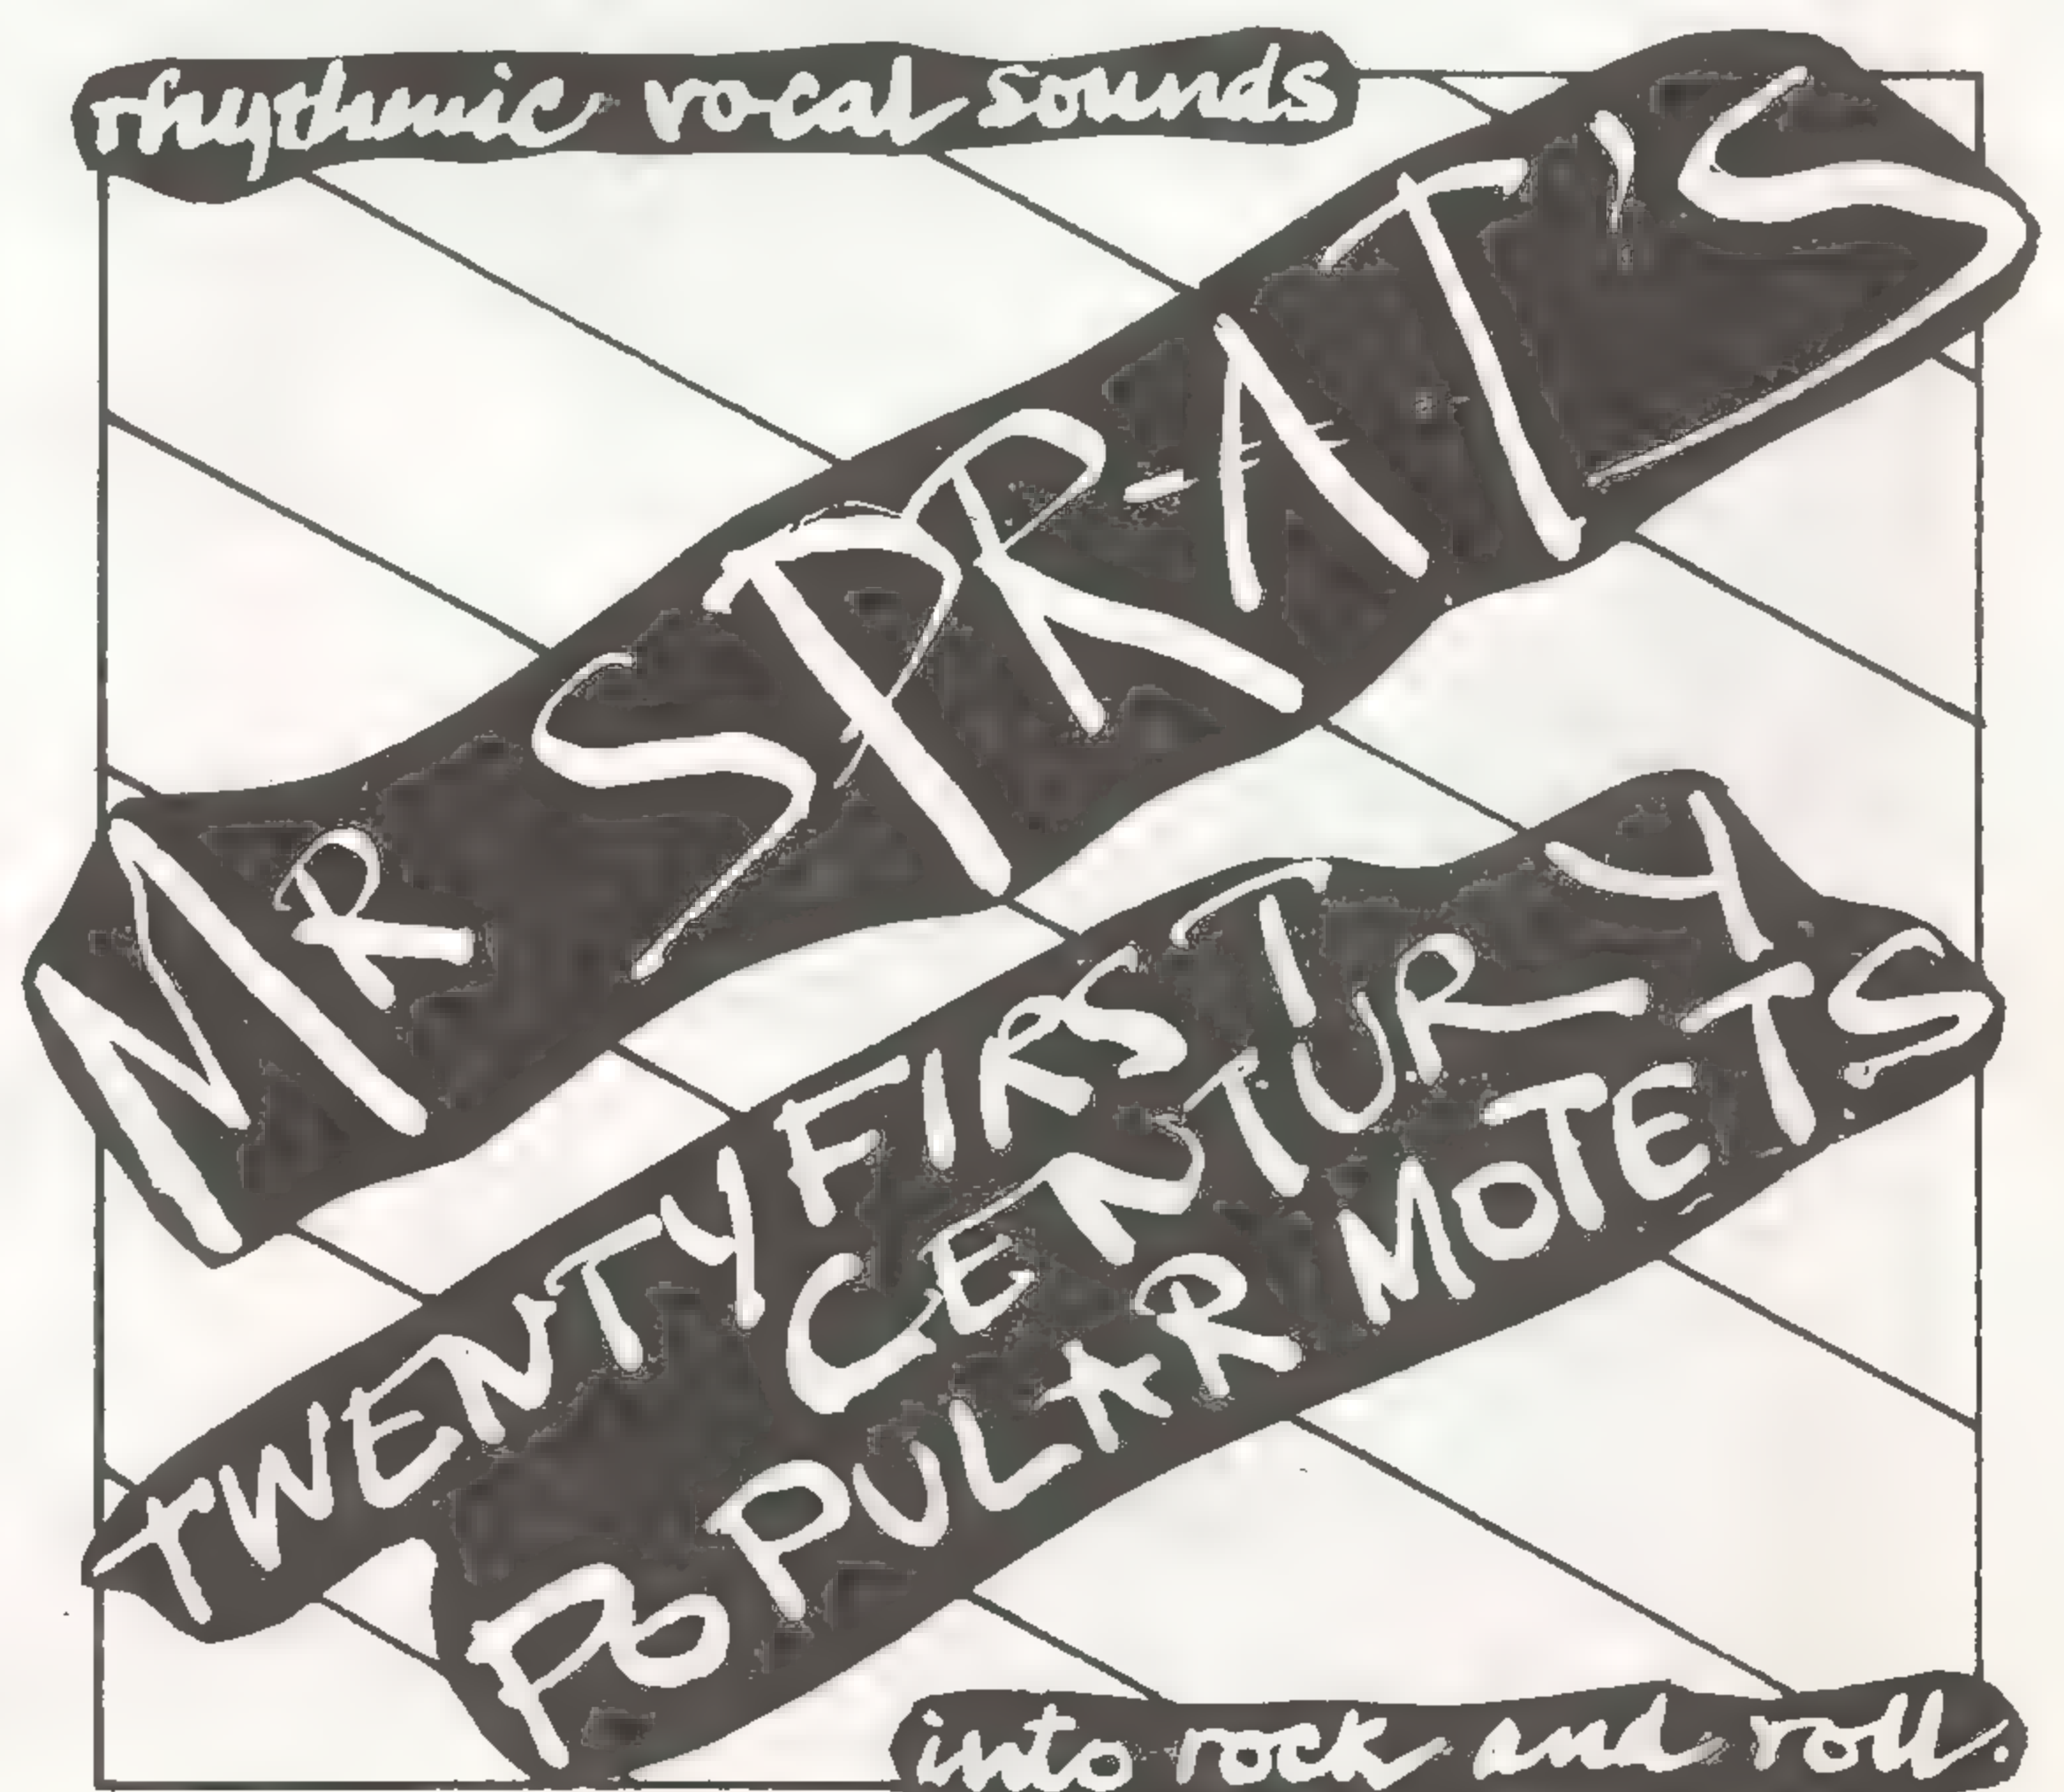 rhythmic vocal sounds
MR SPR-AT'S
TWENTY FIRST
CENTURY
POPULAR MOTETS
into rock and roll.